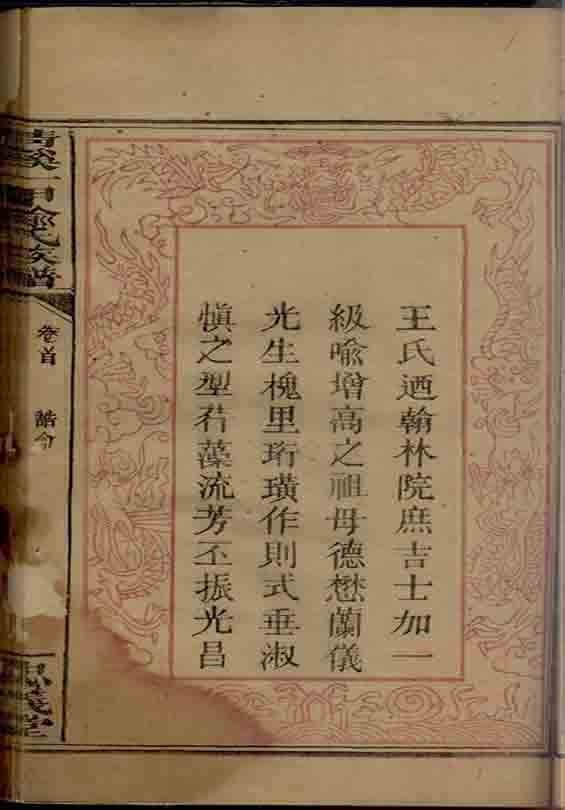 王氏迺翰林院庶吉士加一
級喩增高之祖母德懋蘭儀
光生槐里珩璜作則式垂淑
愼之型荇藻流芳丕振光昌
氏族譜
卷首 誥命